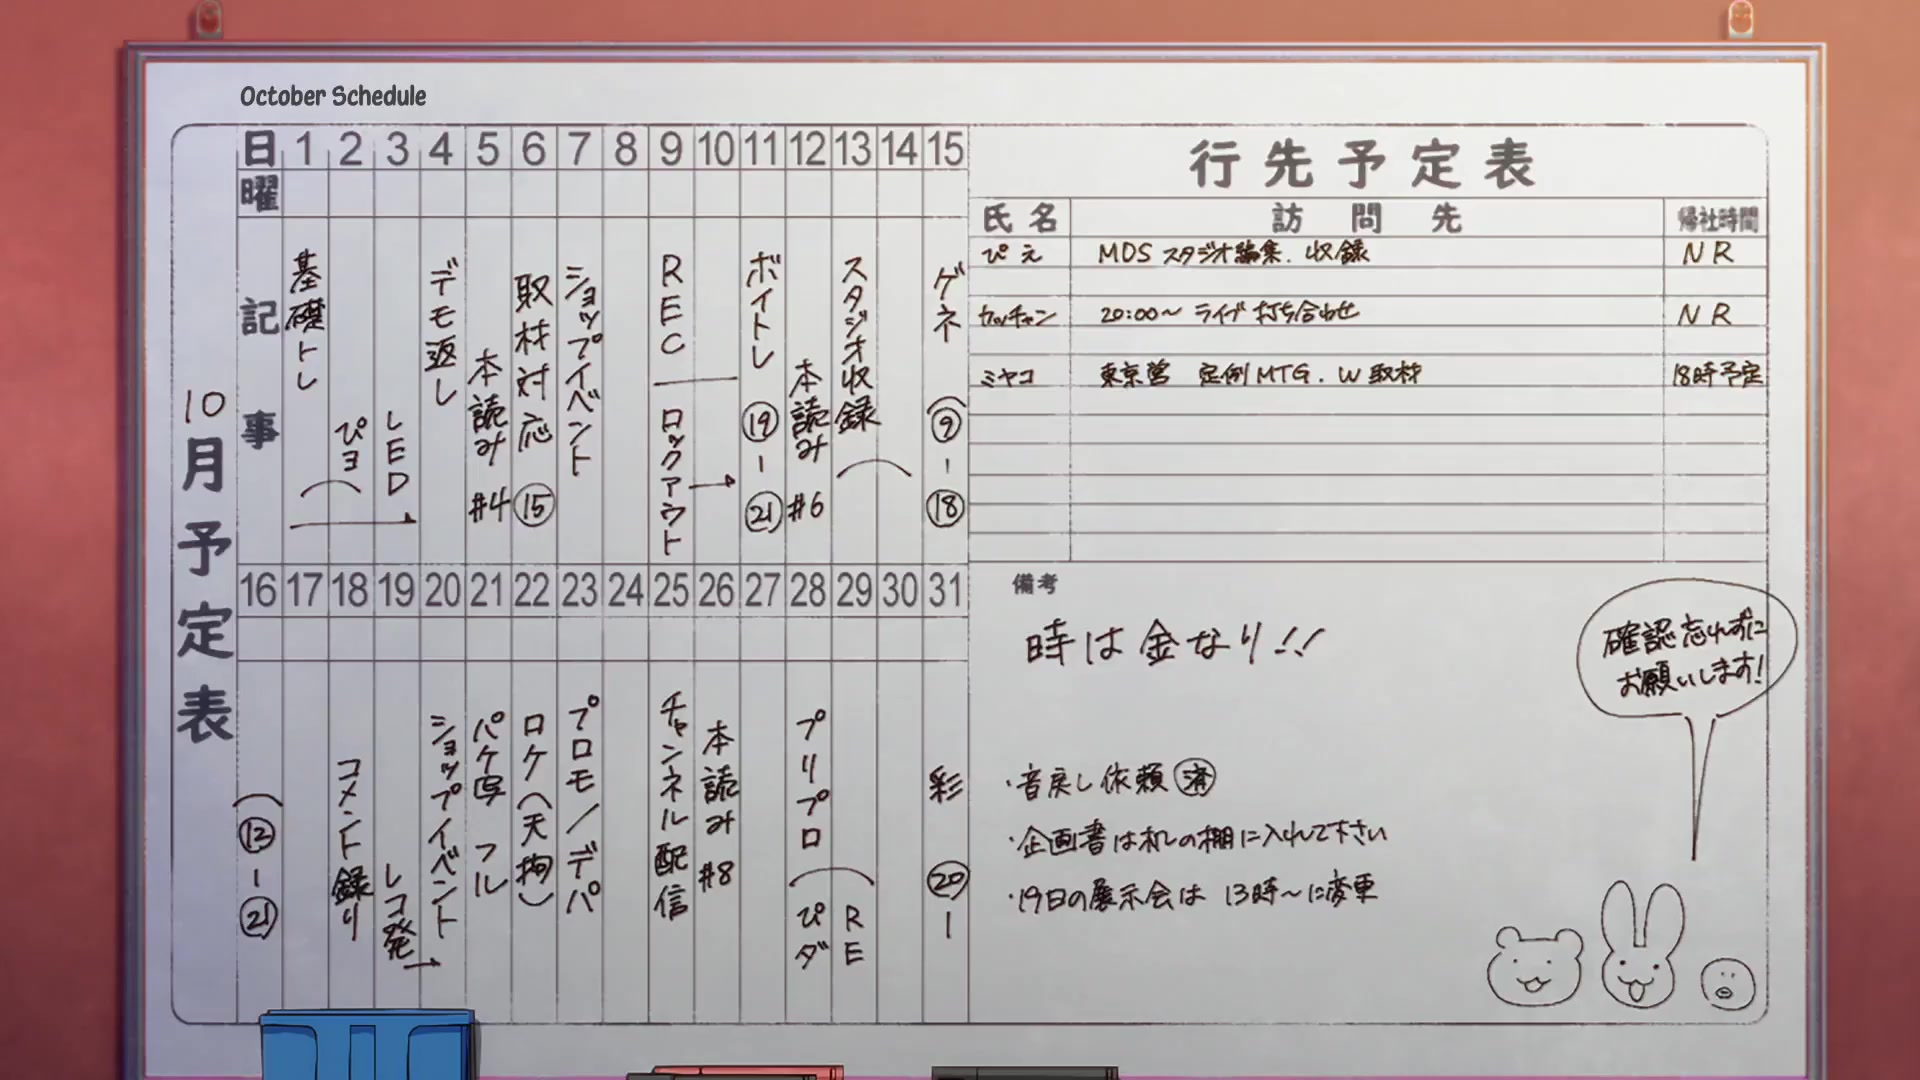 October Schedule
10月予定表
日 1 2 3 4 5 6 7 8 9 10 11 12 13 14 15
曜
記事
基礎トレ
ぴヨ
LED
デモ返し
本読み #4
取材対応 ⑮
ショップイベント
REC ロックアウト
ボイトレ ⑲-㉑
本読み #6
スタジオ収録
ゲネ ⑨-⑱
16 17 18 19 20 21 22 23 24 25 26 27 28 29 30 31
⑫-㉑
コメント録り
レコ発
ショップイベント
パケ写 フル
ロケ(天拘)
プロモ/デパ
チャンネル配信
本読み #8
プリプロ
ぴダ
RE
彩 ⑳-
行先予定表
氏名 訪問先 帰社時間
ぴえ MDSスタジオ編集.収録 NR
カッチャン 20:00~ ライブ打ち合わせ NR
ミヤコ 東京営 定例MTG.W取材 18時予定
備考
時は金なり!!
確認忘れずに
お願いします!
・音戻し依頼 済
・企画書は机の棚に入れて下さい
・19日の展示会は 13時~に変更